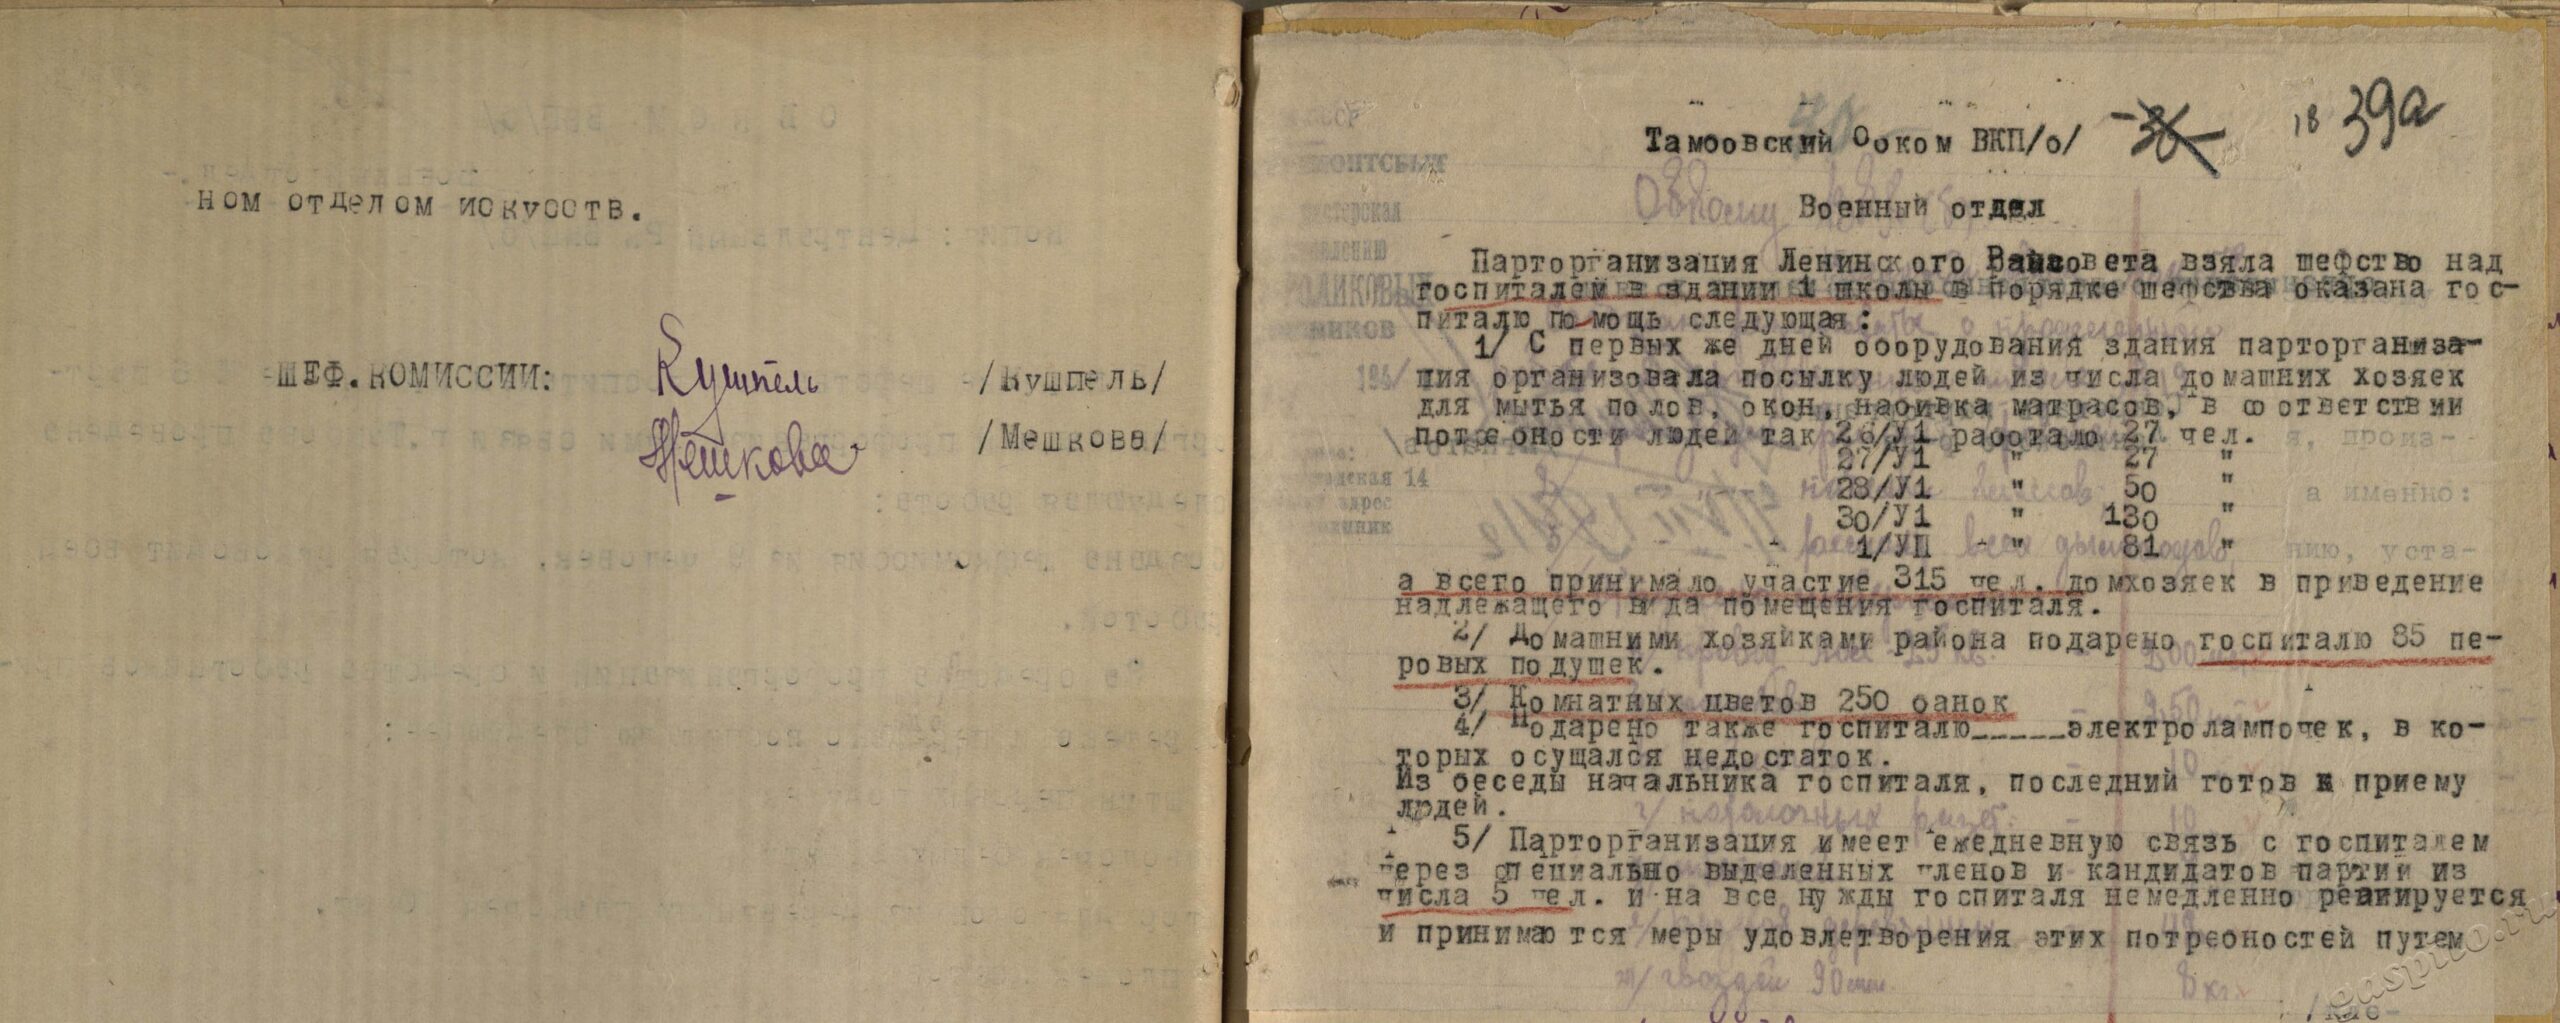 ном отделом искусств.
ШЕФ.КОМИССИИ:
Кушпель
/Кушпель/
Мешкова
/Мешкова/
-36-
18
39а
Тамбовский Обком ВКП/б/
Военный отдел
Парторганизация Ленинского Райсовета взяла шефство над
госпиталем в здании 1 школы в порядке шефства оказана гос-
питалю помощь следующая:
1/ С первых же дней оборудования здания парторганиза-
ция организовала посылку людей из числа домашних хозяек
для мытья полов, окон, набивка матрасов, в соответствии
потребности людей так 26/У1 работало 27 чел.
27/У1 " 27 "
28/У1 " 50 "
30/У1 " 130 "
1/УП " 81 "
а всего принимало участие 315 чел. домхозяек в приведение
надлежащего вида помещения госпиталя.
2/ Домашними хозяйками района подарено госпиталю 85 пе-
ровых подушек.
3/ Комнатных цветов 250 банок
4/ Подарено также госпиталю_____электролампочек, в ко-
торых осущался недостаток.
Из беседы начальника госпиталя, последний готов к приему
людей.
5/ Парторганизация имеет ежедневную связь с госпиталем
через специально выделенных членов и кандидатов партии из
числа 5 чел. и на все нужды госпиталя немедленно реагируется
и принимаются меры удовлетворения этих потребностей путем
gaspito.ru